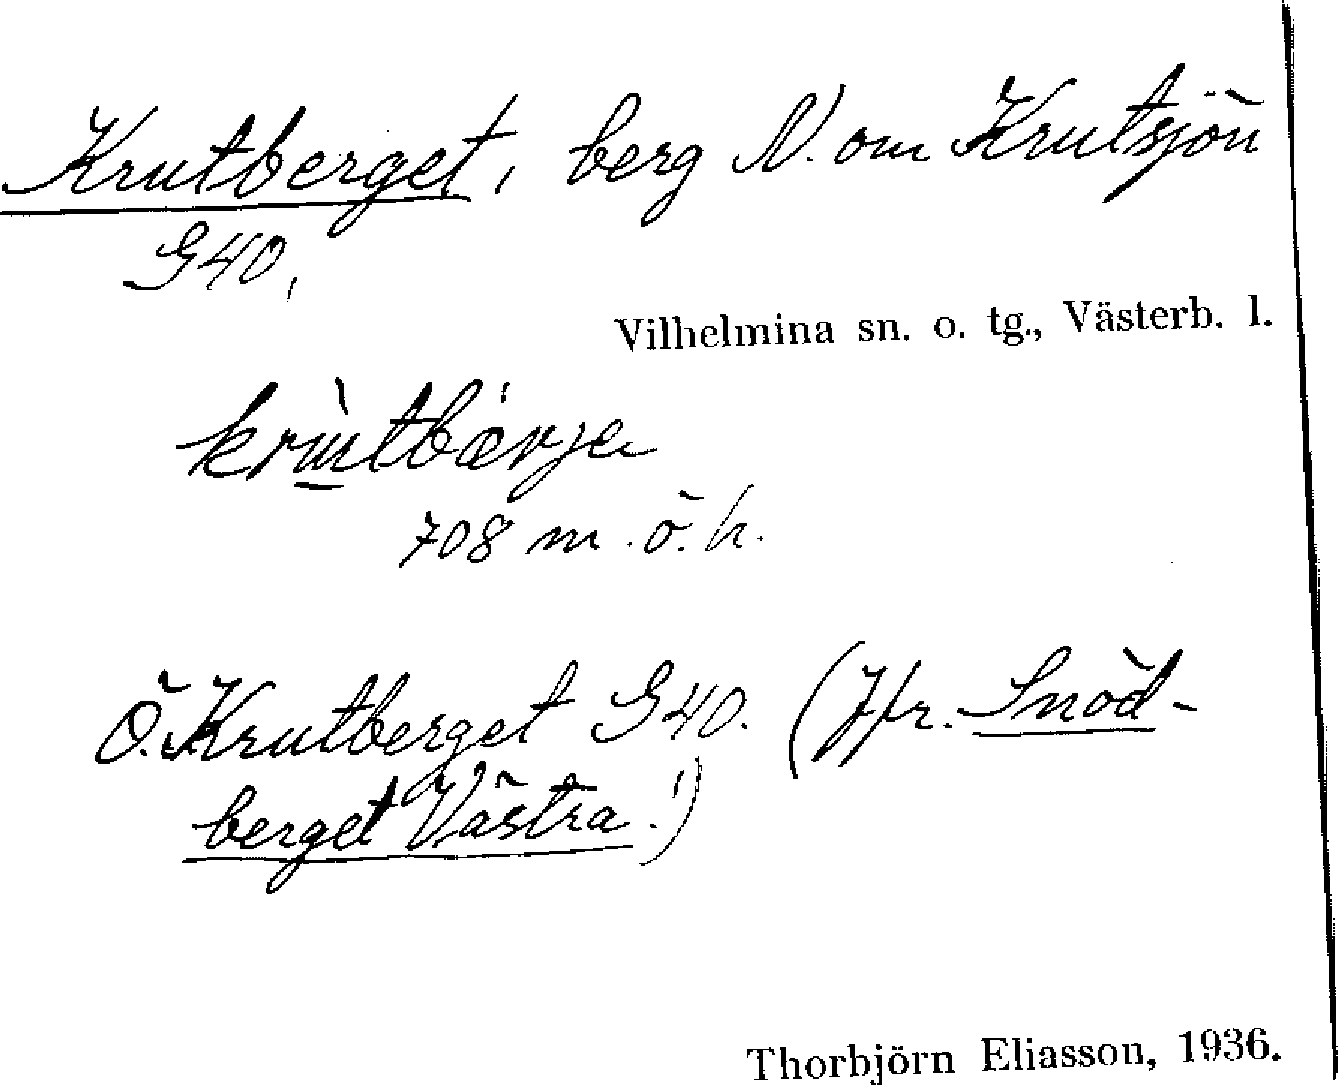 Krutberget, berg N. om Krutsjön
G40,
Vilhelmina sn. o. tg., Västerb. l.
708 m. ö. h.
Ö. Krutberget G40. (Jfr. Snöd-
berget Västra!)
Thorbjörn Eliasson, 1936.